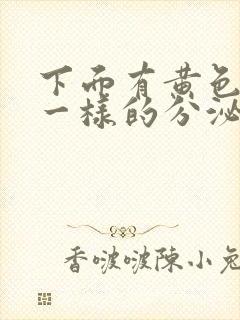 下而有黄色
一様的分泌
香啵啵陳小兔